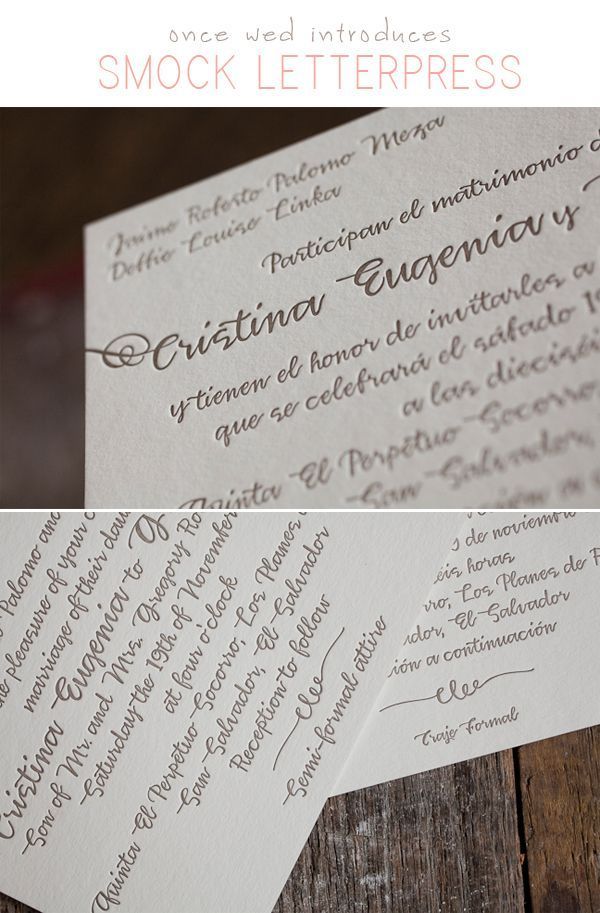 once wed introduces
SMOCK LETTERPRESS
Jaime Roberto Palomo Meza
Debbie Louise Linka
Participan el matrimonio d
Cristina Eugenia y
y tienen el honor de invitarles a
que se celebrará el sábado 19
a las dieciséi
Quinta El Perpétuo Socorro,
San Salvador,
Palomo and
the pleasure of your c
marriage of their dau
Cristina Eugenia to G
Son of Mr. and Mrs. Gregory Ro
Saturday the 19th of November
at four o'clock
Quinta El Perpétuo Socorro, Los Planes
San Salvador, El Salvador
Reception to follow
Semi-formal attire
de noviembre
éis horas
rro, Los Planes de R
ador, El Salvador
ión a continuación
Traje Formal